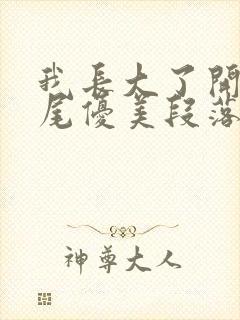 我長大了開
尾優美段落
神尊大人